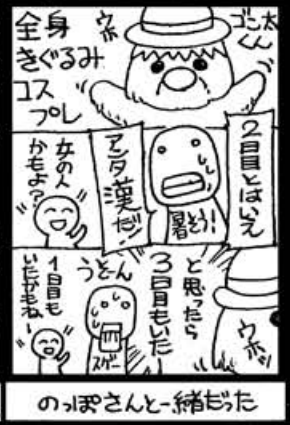 ゴン太
くん
ウホ
全身
きぐるみ
コス
プレ
2日目とはいえ
暑そう!
アンタ漢だ!
女の人
かもよ?
ウホッ
と思ったら
3日目もいたー
うどーん
スゲー
1日目も
いたかもねー
のっぽさんと一緒だった